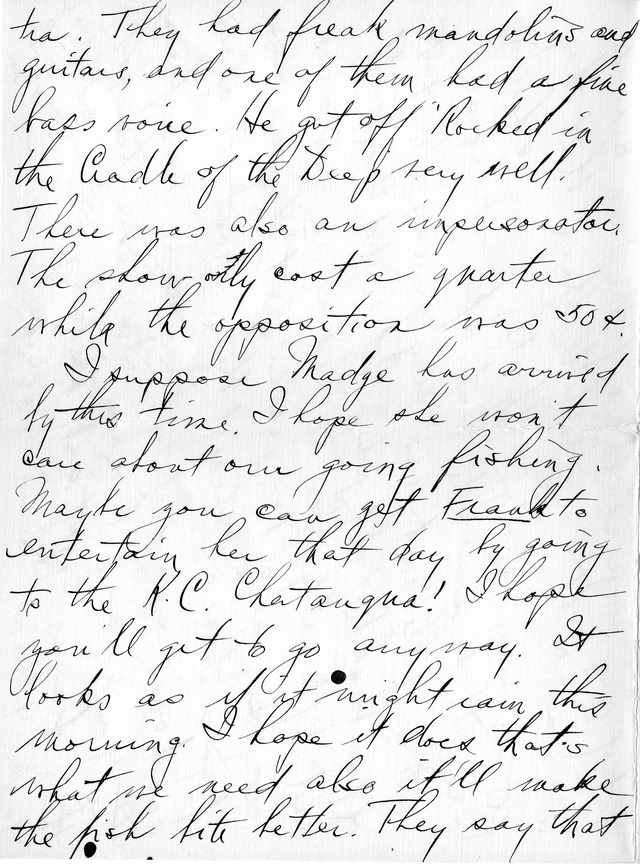 tra. They had freak mandolins and
guitars, and one of them had a fine
bass voice. He got off "Rocked in
the Cradle of the Deep very well.
There was also an impersonator.
The show only cost a quarter
while the opposition was 50¢.
I suppose Madge has arrived
by this time. I hope she won't
care about our going fishing.
Maybe you can get Frank to
entertain her that day by going
to the K.C. Chatauqua! I hope
you'll get to go anyway. It
looks as if it might rain this
morning. I hope it does that's
what we need also it'll make
the fish bite better. They say that